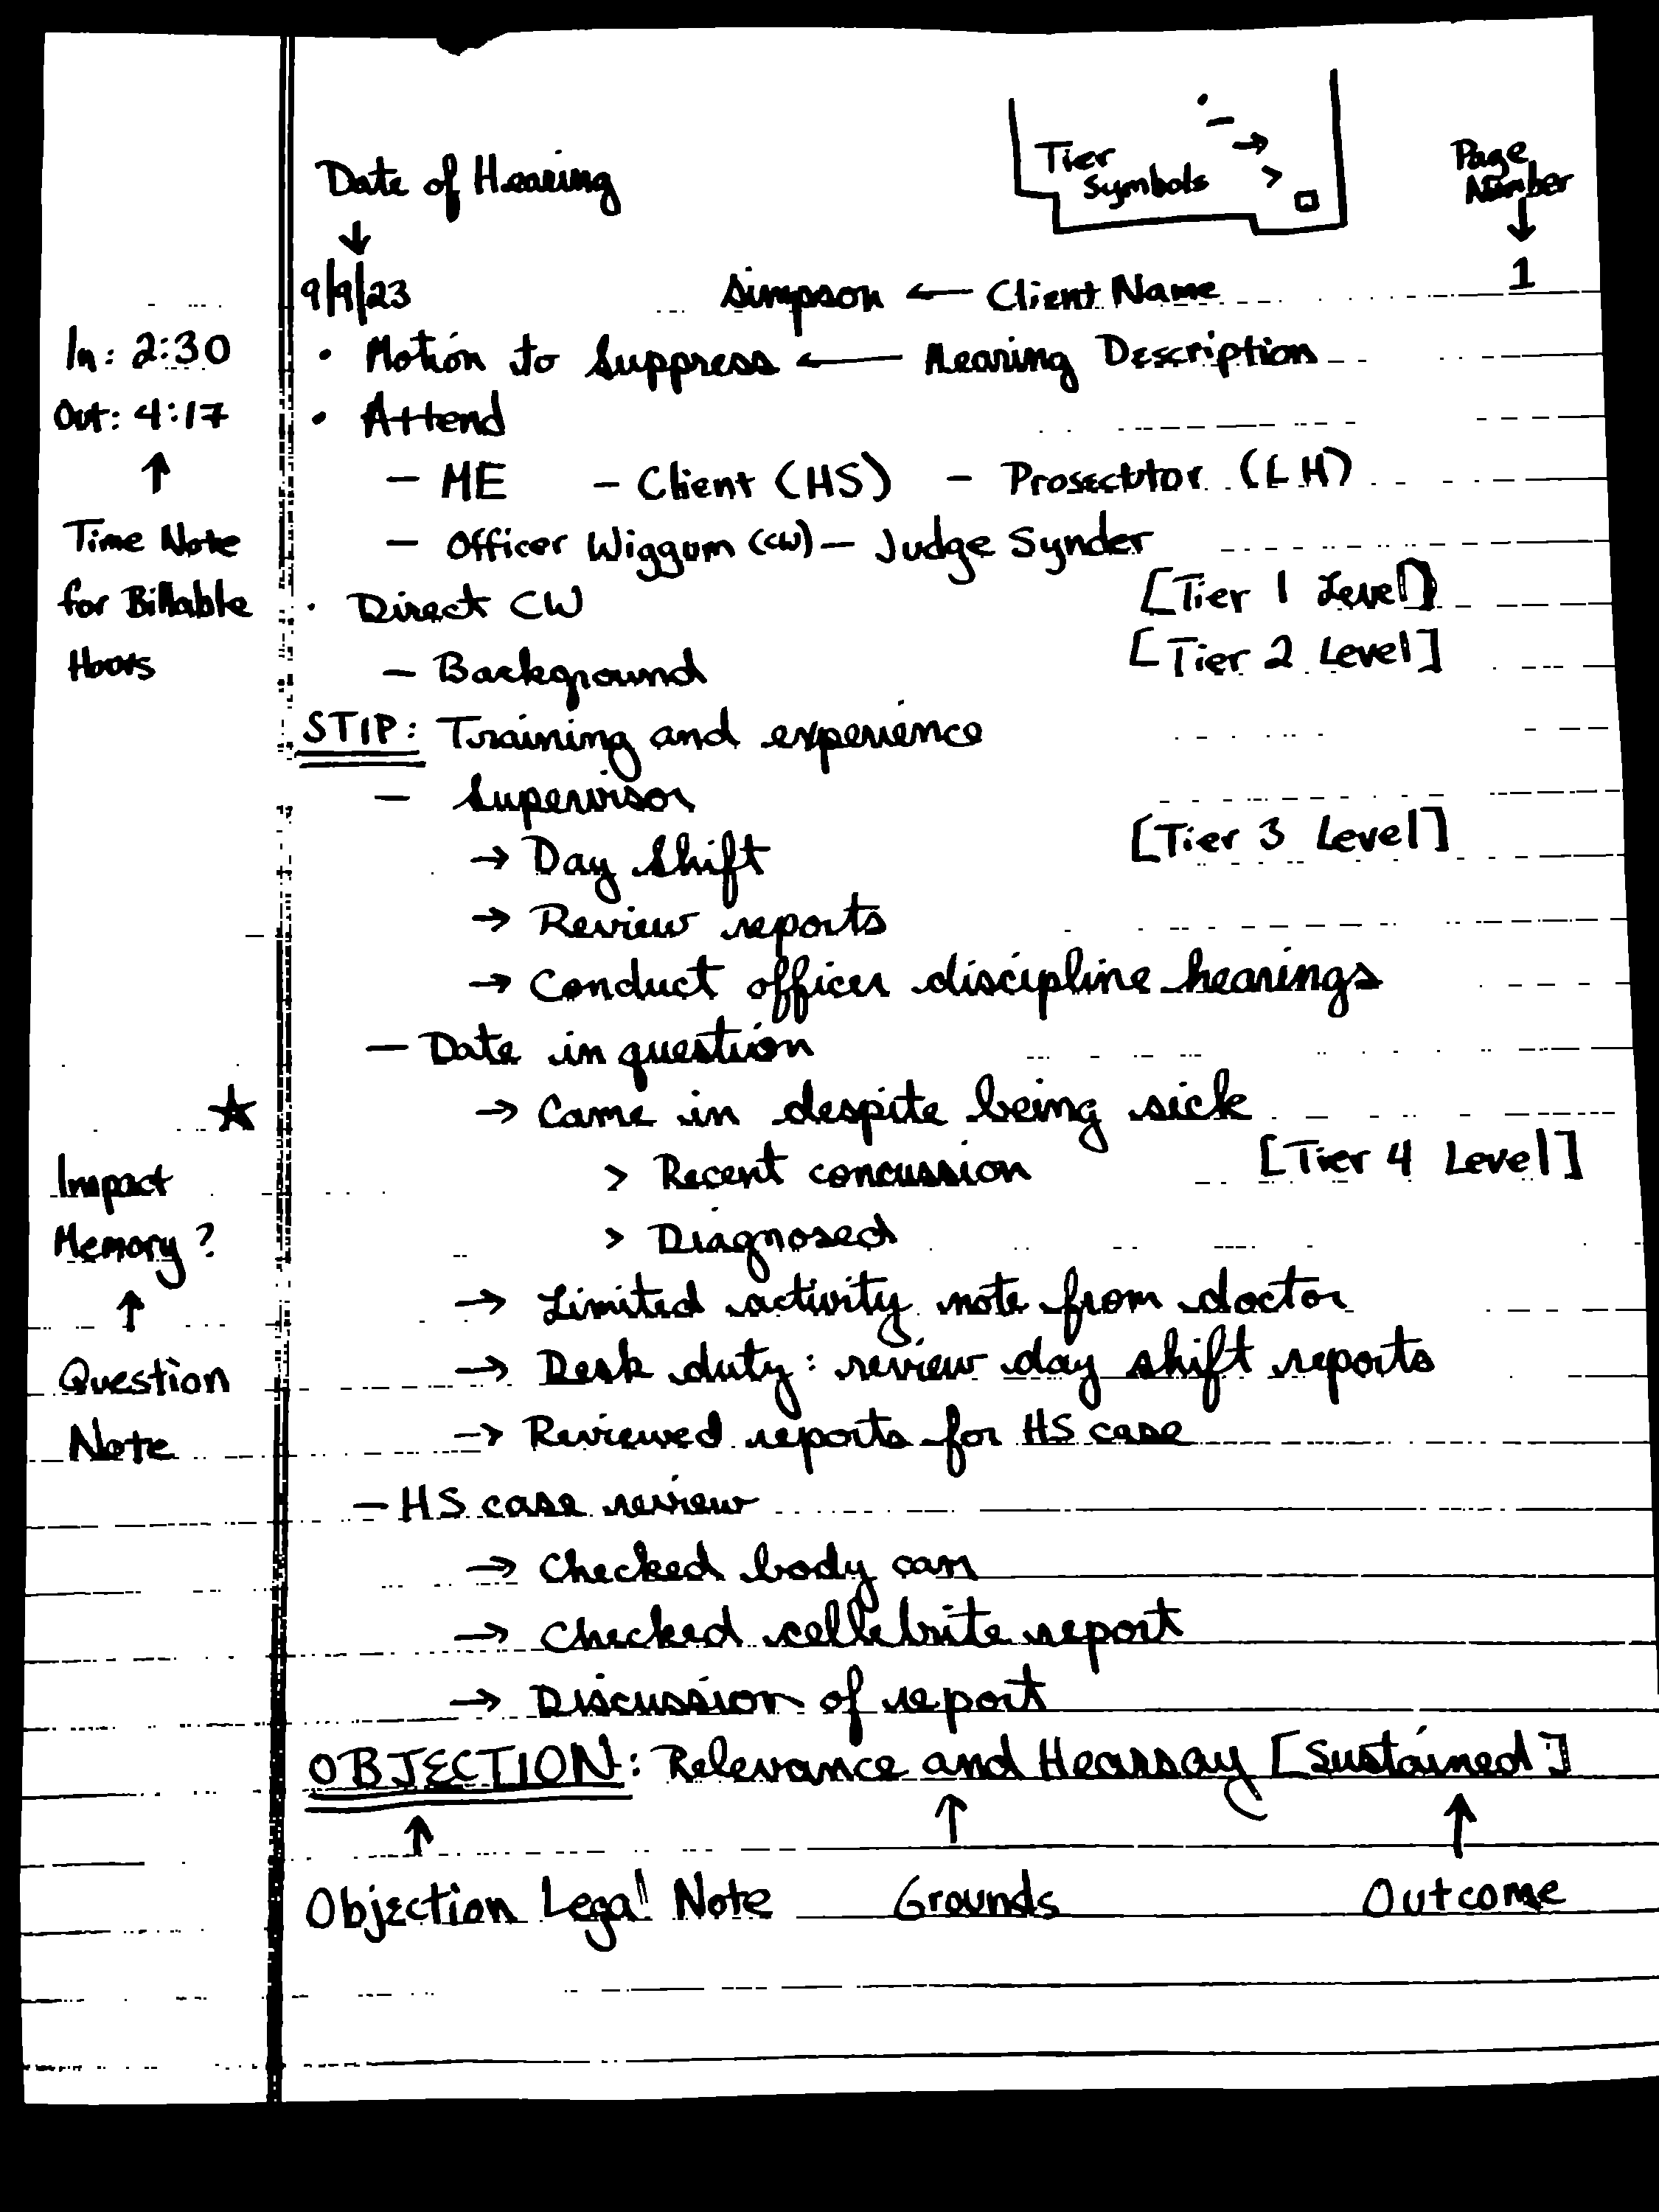 Date of Hearing
Tier Symbols
• – → > □
Page Number
↓
↓
9/9/23 Simpson ← Client Name 1
In: 2:30 • Motion to Suppress ← Hearing Description
Out: 4:17 • Attend
↑ – ME – Client (HS) – Prosecutor (LH)
Time Note – Officer Wiggum (CW) – Judge Synder
for Billable • Direct CW [Tier 1 Level]
Hours – Background [Tier 2 Level]
STIP: Training and experience
– Supervisor
→ Day shift [Tier 3 Level]
→ Review reports
→ Conduct officer discipline hearings
– Date in question
★ → Came in despite being sick
Impact > Recent concussion [Tier 4 Level]
Memory? > Diagnosed
↑ → Limited activity note from doctor
Question → Desk duty: review day shift reports
Note → Reviewed reports for HS case
– HS case review
→ Checked body cam
→ Checked cellebrite report
→ Discussion of report
OBJECTION: Relevance and Hearsay [Sustained]
↑ ↑ ↑
Objection Legal Note Grounds Outcome